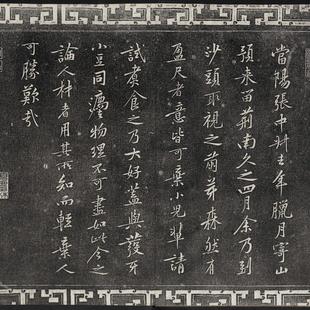 當陽張中叔去年臘月寄山
預來留荊南久之四月余乃到
沙頭取視之萌芽森然有
盈尺者意皆可棄小兒輩請
試煮食之乃大好蓋與發牙
小豆同灋物理不可盡如此今之
論人材者用其所知而輕棄人
可勝歎哉